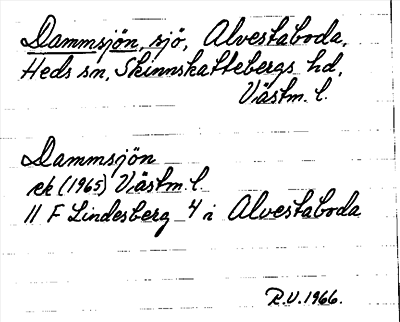 Dammsjön, sjö, Alvestaboda,
Heds sn, Skinnskattebergs hd,
Västm. l.
Dammsjön
ek (1965) Västm. l.
11 F Lindesberg 4 i Alvestaboda
R.U. 1966.